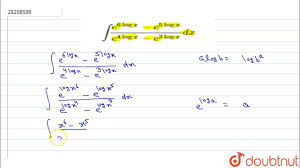 28208589
∫ (e^{6 log x} − e^{5 log x}) / (e^{4 log x} − e^{3 log x}) dx
∫ (e^{6 log x} − e^{5 log x}) / (e^{4 log x} − e^{3 log x}) dx
a log b = log b^a
∫ (e^{log x^6} − e^{log x^5}) / (e^{log x^4} − e^{log x^3}) dx
e^{log a} = a
∫ (x^6 − x^5) /
doubtnut